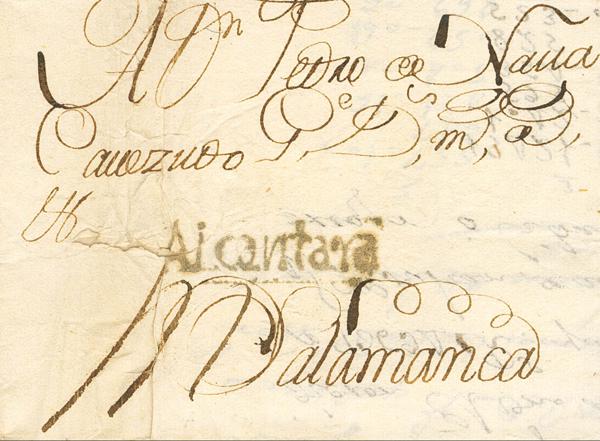 A Dn Pedro de Naua
Cauezudo Ge Ds m a
Alcantara
Salamanca